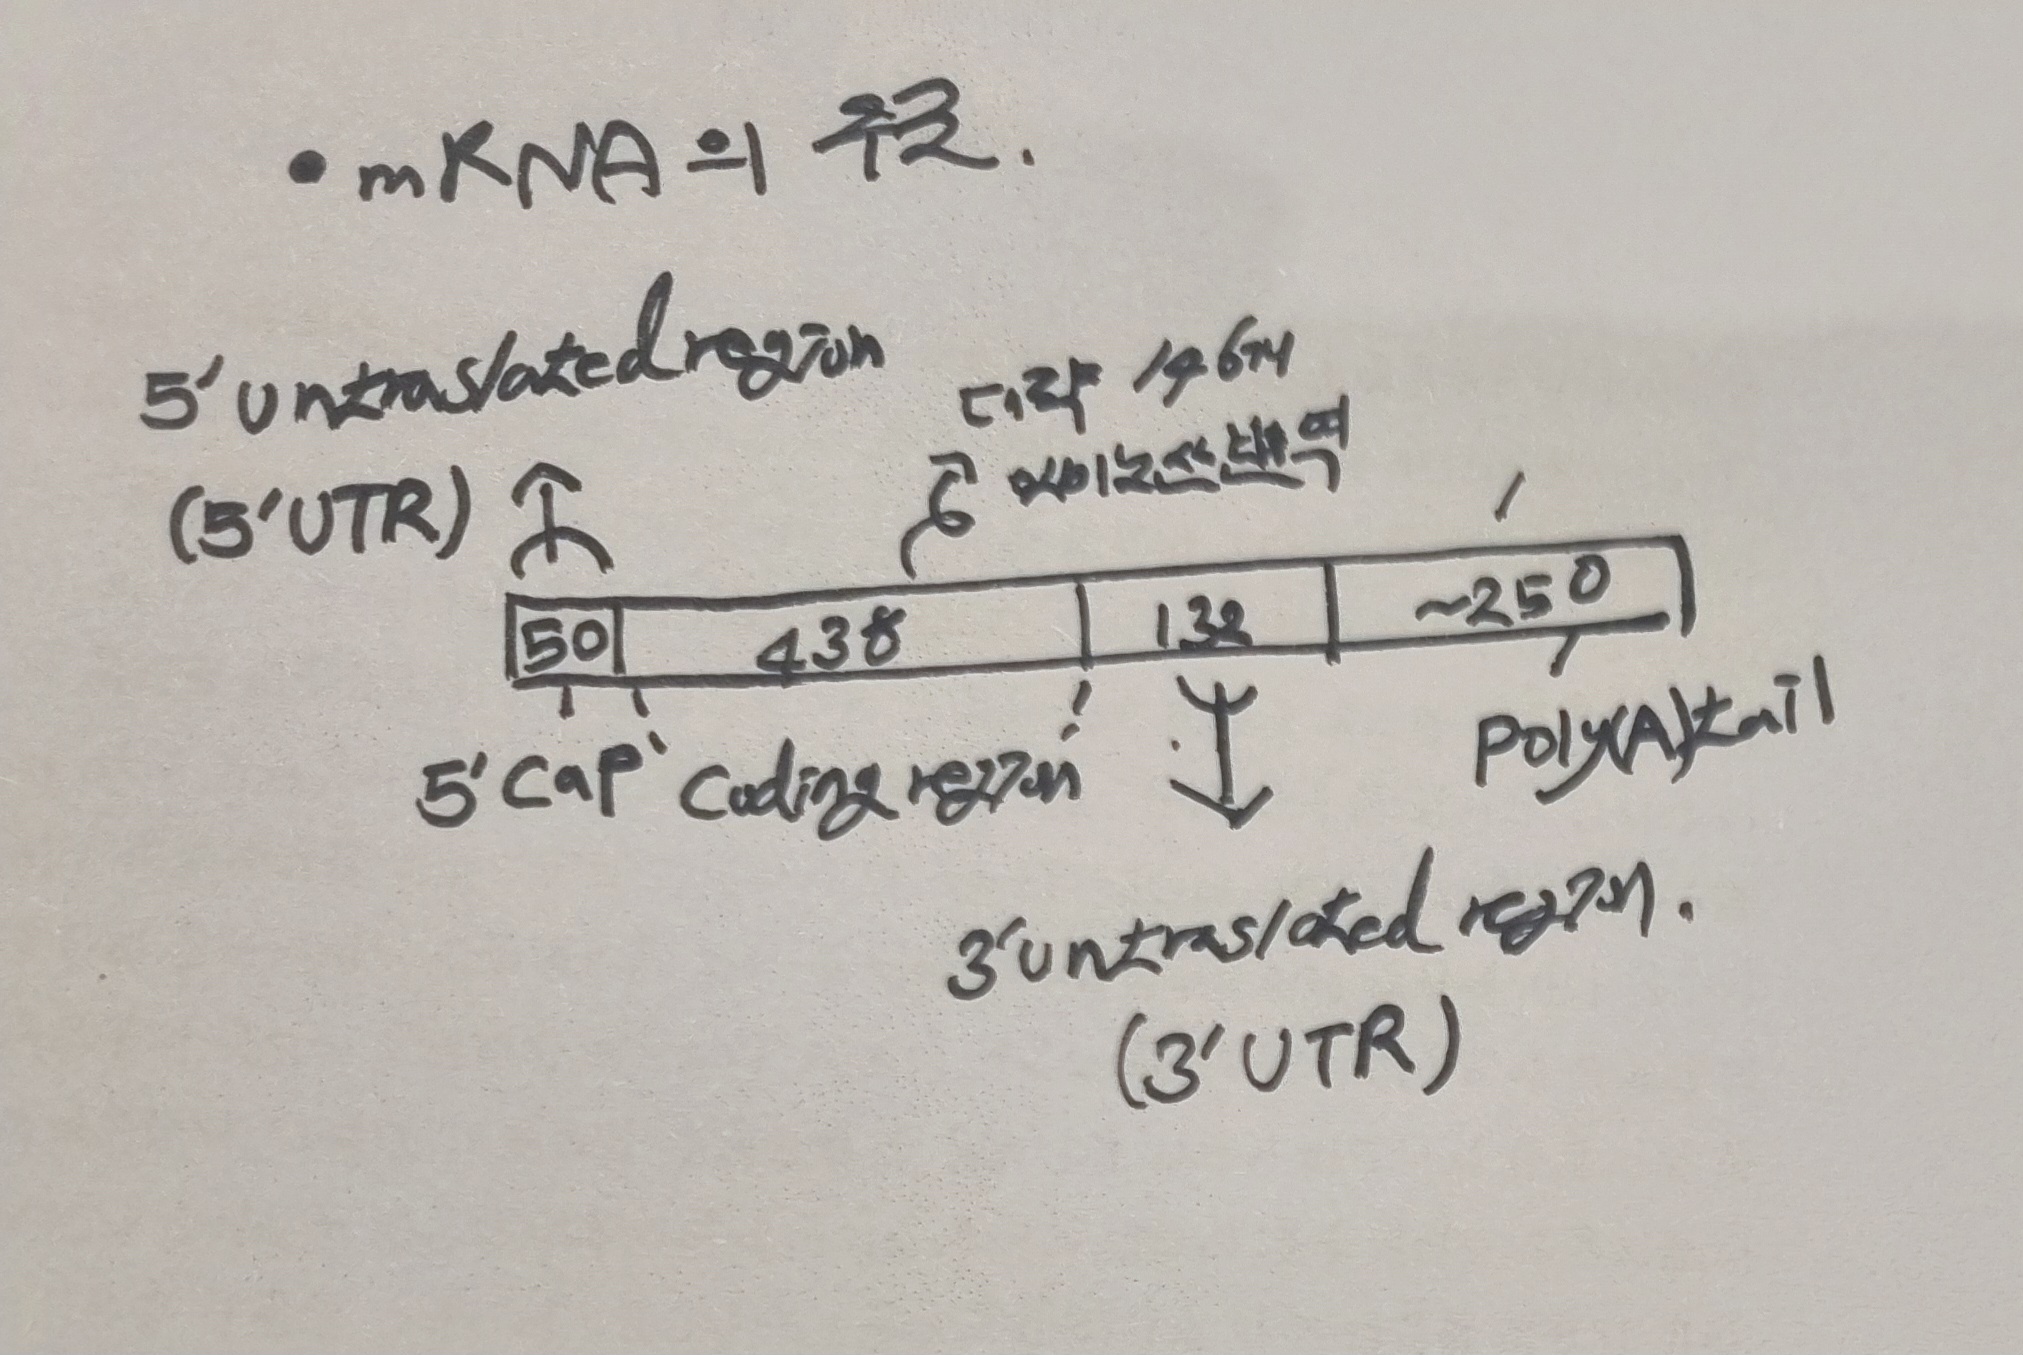 • mRNA의 구조.
5' untraslated region
(5'UTR)
대략 146개
아미노산 번역
50
438
132
~250
5' Cap
Coding region
Poly(A)tail
3' untraslated region.
(3'UTR)